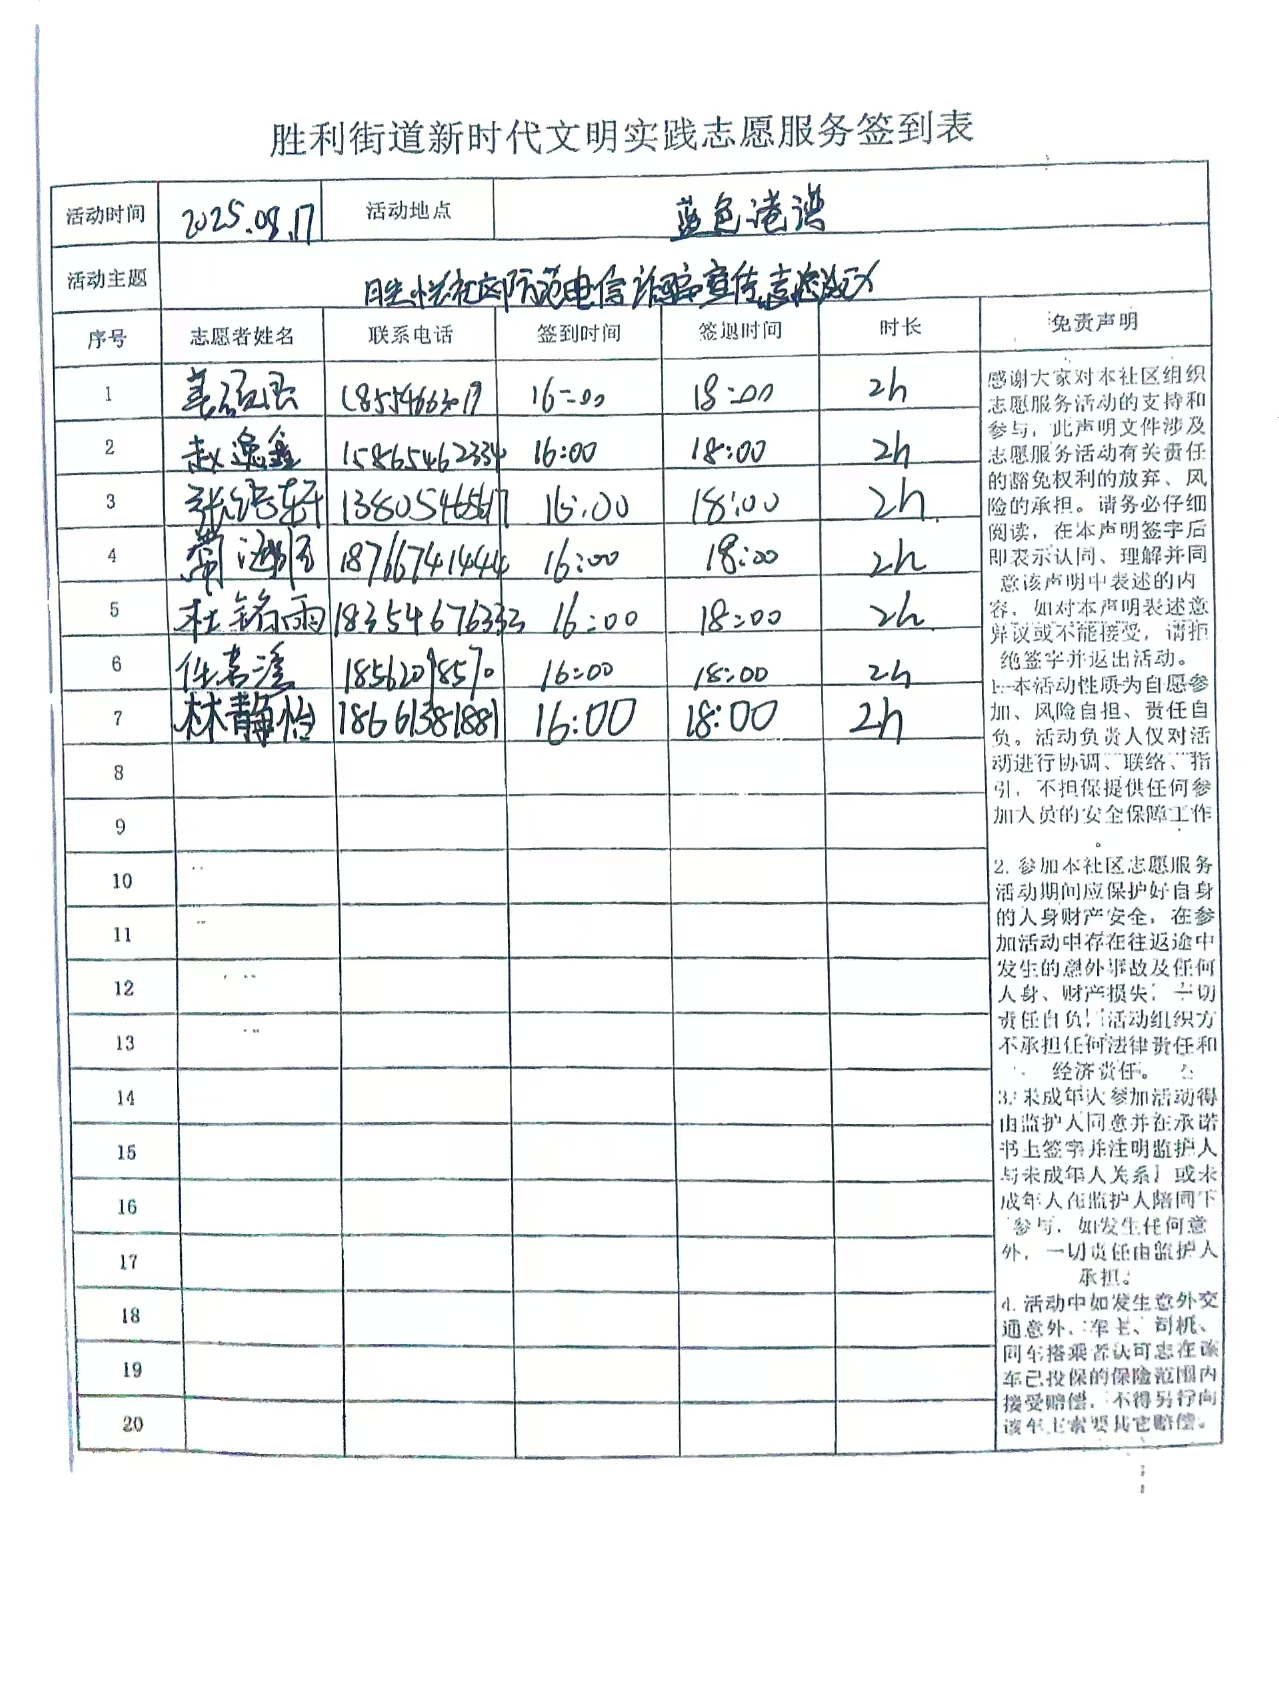 胜利街道新时代文明实践志愿服务签到表
活动时间 2025.08.17 活动地点 蓝色港湾
活动主题 社区防范电信诈骗宣传志愿
序号 志愿者姓名 联系电话 签到时间 签退时间 时长 免责声明
1 姜 16:00 18:00 2h
2 赵逸鑫 15865462334 16:00 18:00 2h
3 张 轩 16:00 18:00 2h
4 18766741444 16:00 18:00 2h
5 杜铭雨 18354676333 16:00 18:00 2h
6 任 18562098570 16:00 18:00 2h
7 林静怡 18661381881 16:00 18:00 2h
8
9
10
11
12
13
14
15
16
17
18
19
20
感谢大家对本社区组织
志愿服务活动的支持和
参与,此声明文件涉及
志愿服务活动有关责任
的豁免权利的放弃、风
险的承担。请务必仔细
阅读,在本声明签字后
即表示认同、理解并同
意该声明中表述的内
容,如对本声明表述意
异议或不能接受,请拒
绝签字并返出活动。
1.本活动性质为自愿参
加、风险自担、责任自
负。活动负责人仅对活
动进行协调、联络、指
引,不担保提供任何参
加人员的安全保障工作
。
2.参加本社区志愿服务
活动期间应保护好自身
的人身财产安全,在参
加活动中存在往返途中
发生的意外事故及任何
人身、财产损失,一切
责任自负,活动组织方
不承担任何法律责任和
经济责任。
3.未成年人参加活动得
由监护人同意并在承诺
书上签字并注明监护人
与未成年人关系,或未
成年人在监护人陪同下
参与,如发生任何意
外,一切责任由监护人
承担。
4.活动中如发生意外交
通意外,车主、司机、
同车搭乘者认可志在该
车已投保的保险范围内
接受赔偿,不得另行向
该车主索要其它赔偿。